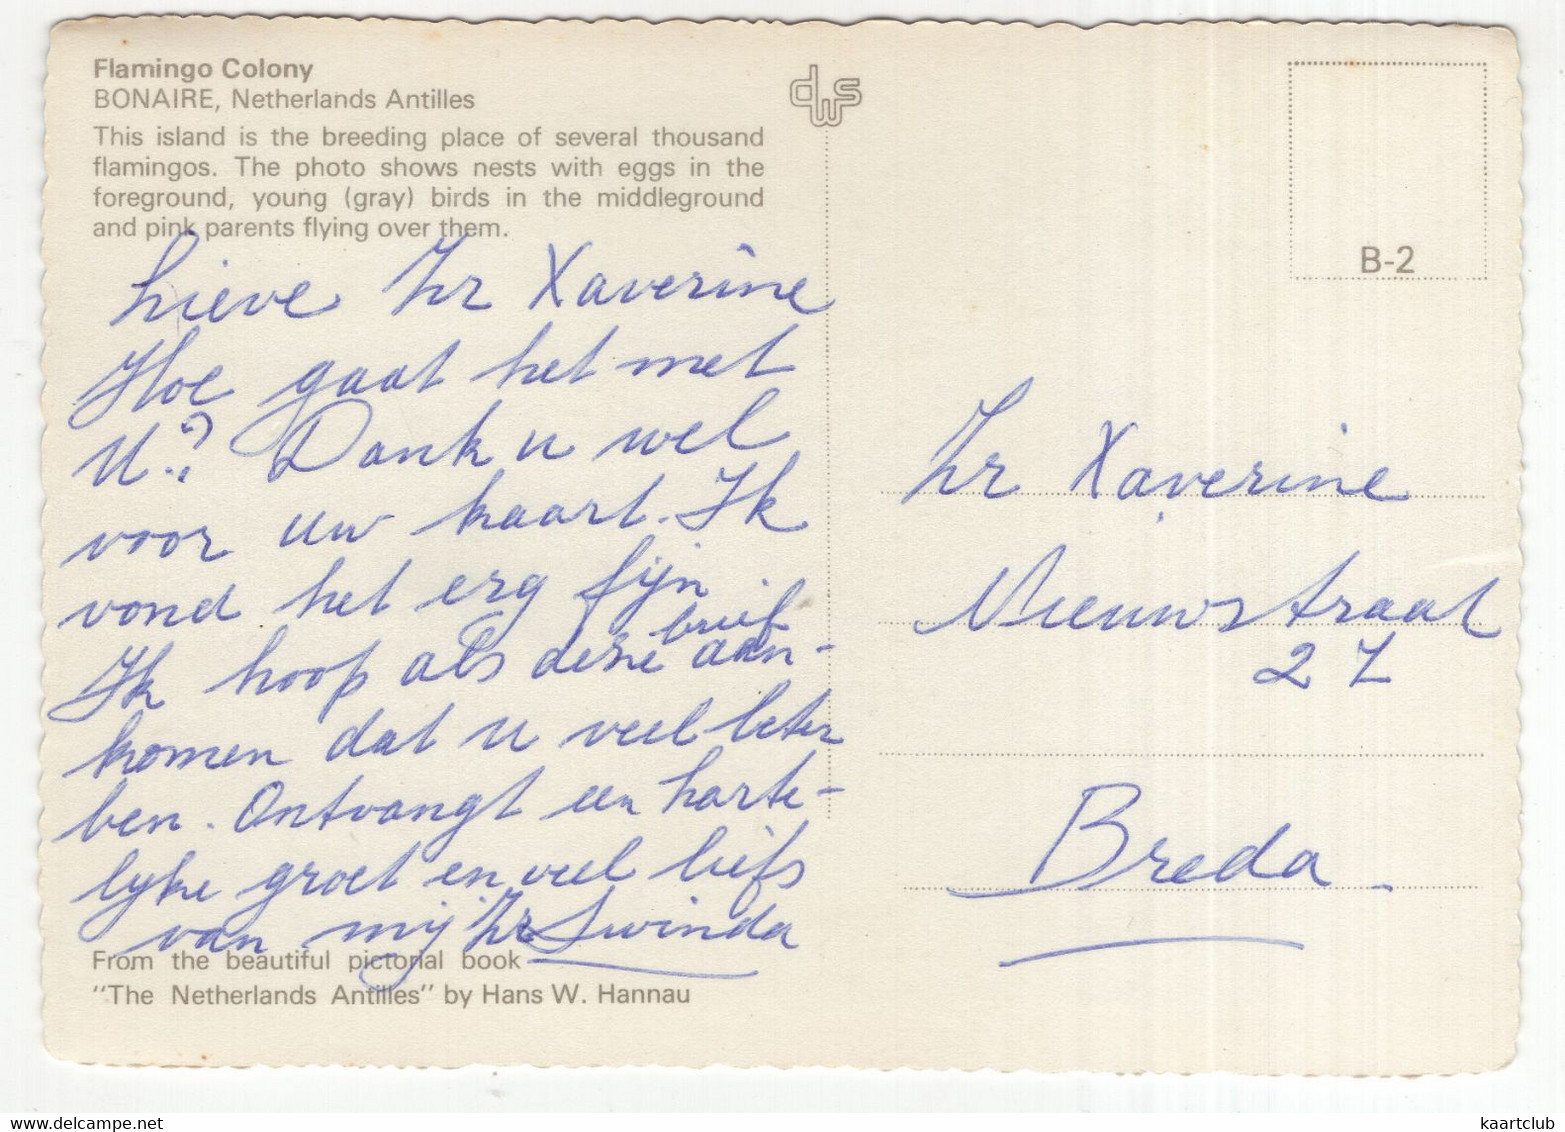 Flamingo Colony
BONAIRE, Netherlands Antilles
This island is the breeding place of several thousand
flamingos. The photo shows nests with eggs in the
foreground, young (gray) birds in the middleground
and pink parents flying over them.
dws
B-2
Lieve Zr Xaverine
Hoe gaat het met
U? Dank u wel
voor uw kaart. Ik
vond het erg fijn
Ik hoop als deze brief aan-
komen dat u veel beter
ben. Ontvangt een harte-
lyke groet en veel liefs
van mij Zr Swinda
From the beautiful pictorial book
"The Netherlands Antilles" by Hans W. Hannau
Zr Xaverine
Nieuwstraat
27
Breda.
kaartclub